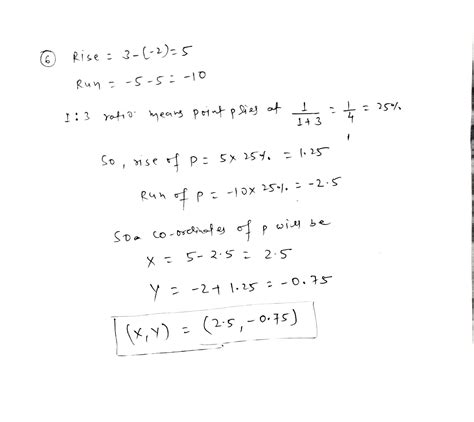 ⑥ Rise = 3-(-2)=5
Run = -5-5 = -10
1:3 ratio means point p lies at 1/(1+3) = 1/4 = 25%
So, rise of P = 5x 25% = 1.25
Run of P = -10x 25% = -2.5
So co-ordinates of p will be
X = 5-2.5 = 2.5
Y = -2+1.25 = -0.75
(X,Y) = (2.5, -0.75)